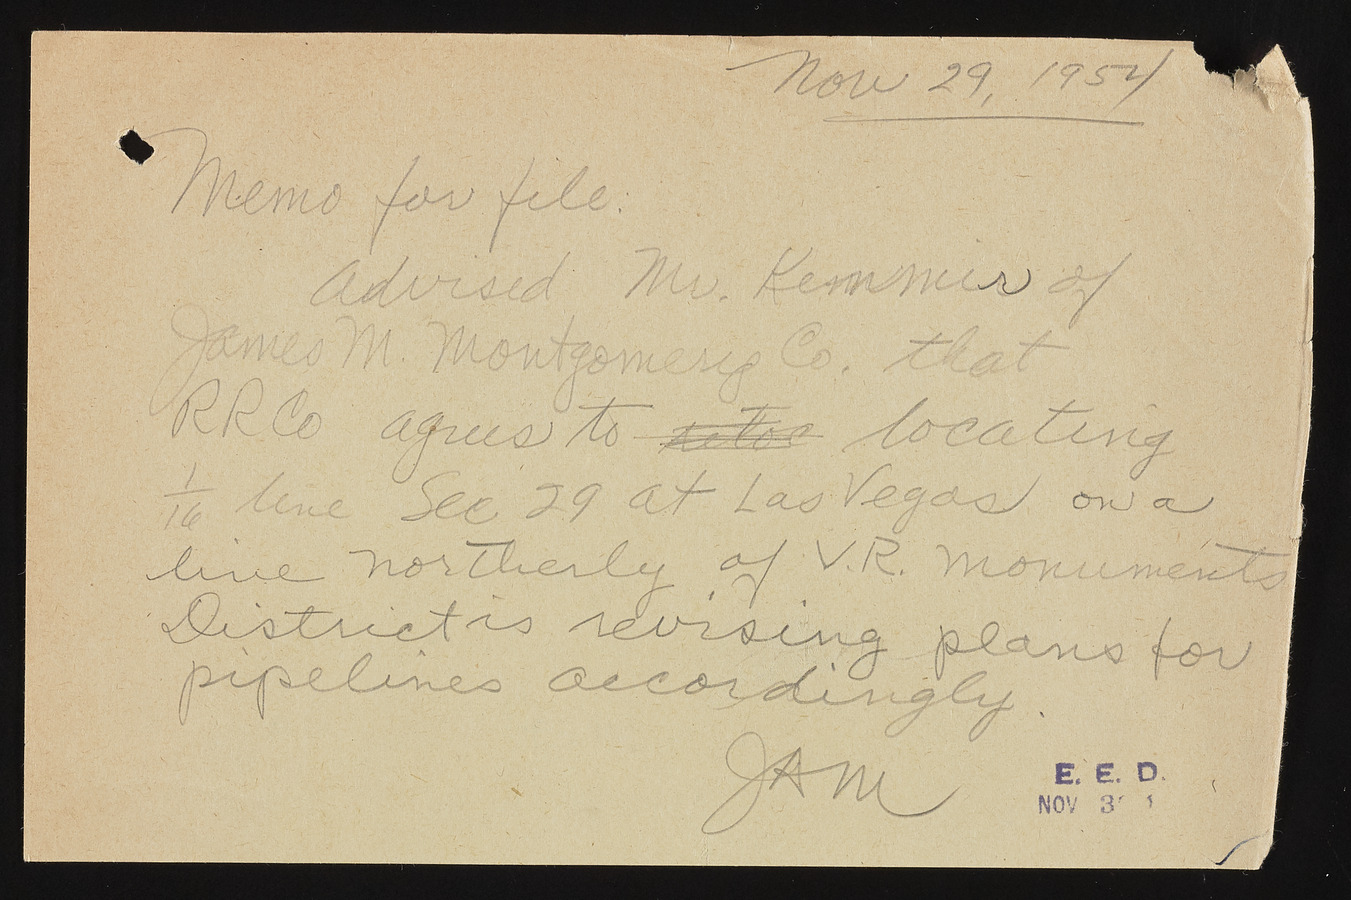 Nov 29, 1954
Memo for file:
Advised Mr. Kemmir of
James M. Montgomery Co. that
RR Co agrees to locating
1/16 line Sec 29 at Las Vegas on a
line northerly of V.R. monuments
District is revising plans for
pipelines accordingly.
JAM
E. E. D.
NOV 3